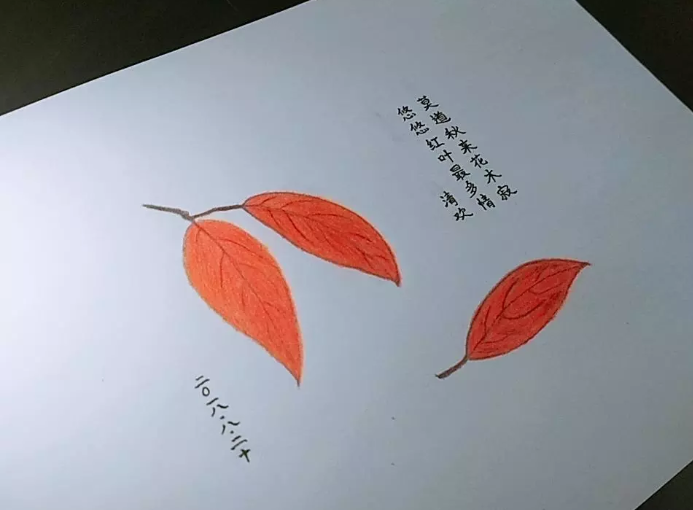 莫道秋来花木寂
悠悠红叶最多情
清欢
二〇一八.八.二十